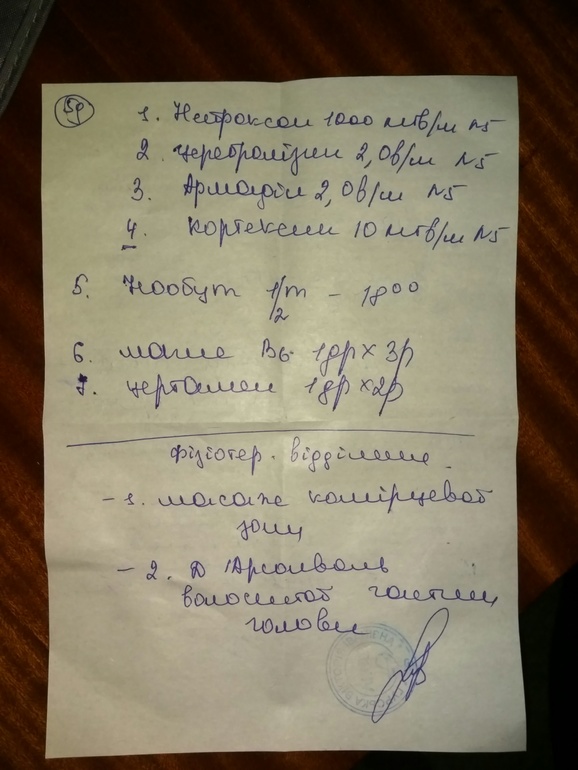 59
1. Нейроксон 1000 мг в/м N5
2. Церебролізин 2,0 в/м N5
3. Армадін 2,0 в/м N5
4. Кортексин 10 мг в/м N5
5. Нообут 1/2 т - 18⁰⁰
6. магне В6 1др х 3р
7. 1др х 2р
фізіотер. відділення
- 1. масаж комірцевої
зони
- 2. Д'Арсонваль
волосистої частини
голови